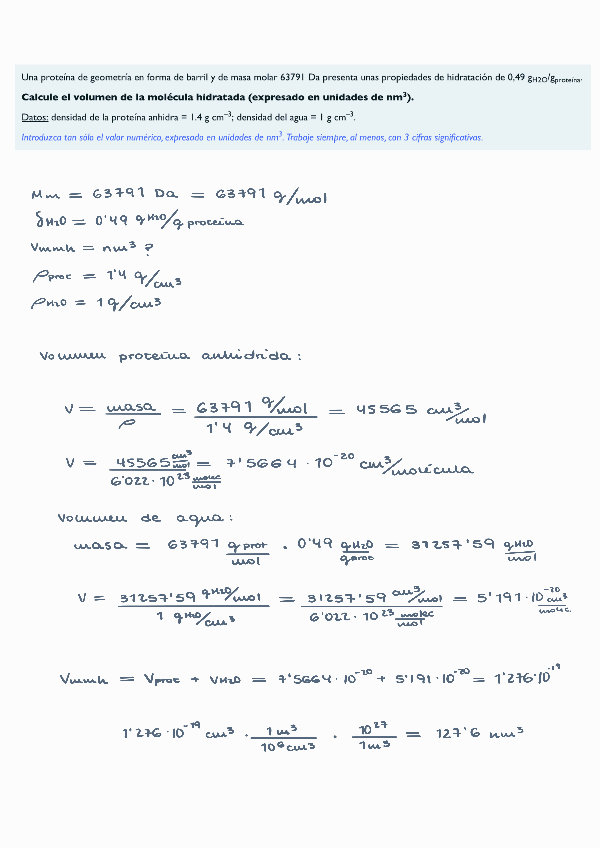 Una proteína de geometría en forma de barril y de masa molar 63791 Da presenta unas propiedades de hidratación de 0,49 gH2O/gproteína.
Calcule el volumen de la molécula hidratada (expresado en unidades de nm³).
Datos: densidad de la proteína anhidra = 1.4 g cm⁻³; densidad del agua = 1 g cm⁻³.
Introduzca tan sólo el valor numérico, expresado en unidades de nm³. Trabaje siempre, al menos, con 3 cifras significativas.
Mm = 63791 Da = 63791 g/mol
δH2O = 0'49 gH2O/g proteína
Vmmh = nm³ ?
ρproc = 1'4 g/cm³
ρH2O = 1 g/cm³
Volumen proteína anhidrida :
V = masa/ρ = 63791 g/mol / 1'4 g/cm³ = 45565 cm³/mol
V = 45565 cm³/mol / 6'022 · 10²³ molec/mol = 7'5664 · 10⁻²⁰ cm³/molécula
Volumen de agua :
masa = 63791 g prot/mol · 0'49 gH2O/gproc = 31257'59 gH2O/mol
V = 31257'59 gH2O/mol / 1 gH2O/cm³ = 31257'59 cm³/mol / 6'022 · 10²³ molec/mol = 5'191 · 10⁻²⁰ cm³/molec.
Vmmh = Vproc + VH2O = 7'5664 · 10⁻²⁰ + 5'191 · 10⁻²⁰ = 1'276 · 10⁻¹⁹
1'276 · 10⁻¹⁹ cm³ · 1 m³/10⁶ cm³ · 10²⁷/1m³ = 127'6 nm³